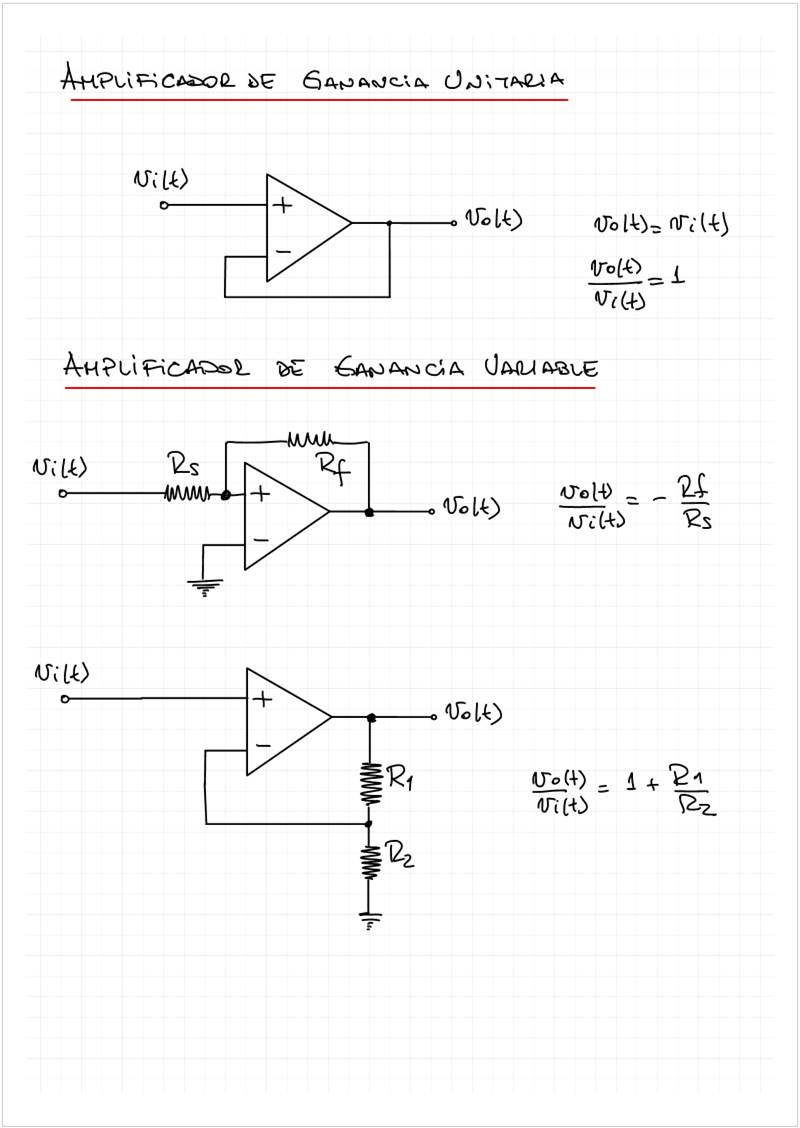 AMPLIFICADOR DE GANANCIA UNITARIA
Vi(t)
+
−
Vo(t)
Vo(t) = Vi(t)
Vo(t)/Vi(t) = 1
AMPLIFICADOR DE GANANCIA VARIABLE
Vi(t)
Rs
Rf
+
−
Vo(t)
Vo(t)/Vi(t) = - Rf/Rs
Vi(t)
+
−
Vo(t)
R1
R2
Vo(t)/Vi(t) = 1 + R1/R2